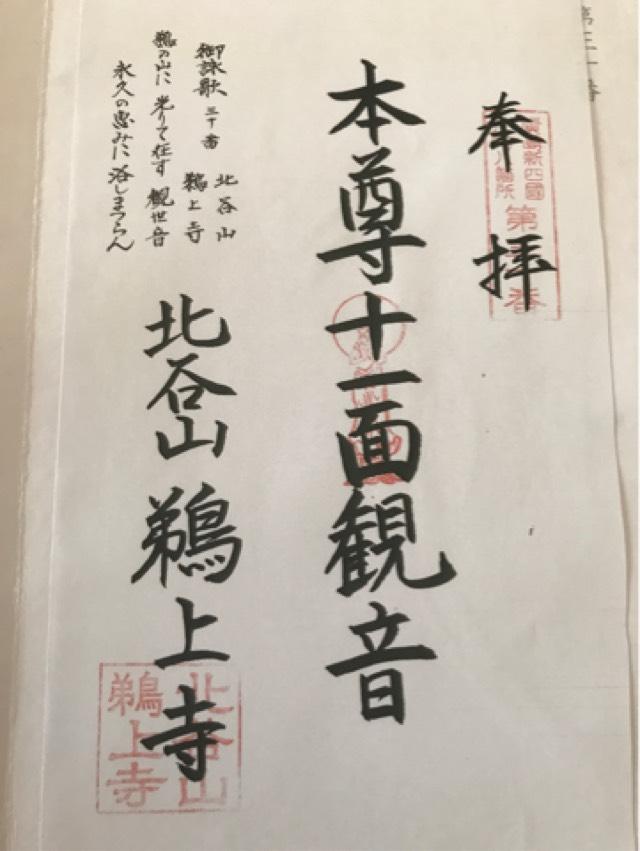 奉拝
本尊十一面観音
北谷山 鵜上寺
御詠歌 三十番 北谷山 鵜上寺
鵜の山に 光りて在す 観世音
永久の恵みに 浴しまつらん
新四國
所
第
番
北谷山
鵜上寺